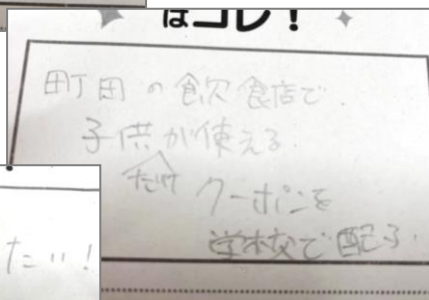 はコレ！
町田の飲食店で
子供が使える
だけ
クーポンを
学校で配る
たい！